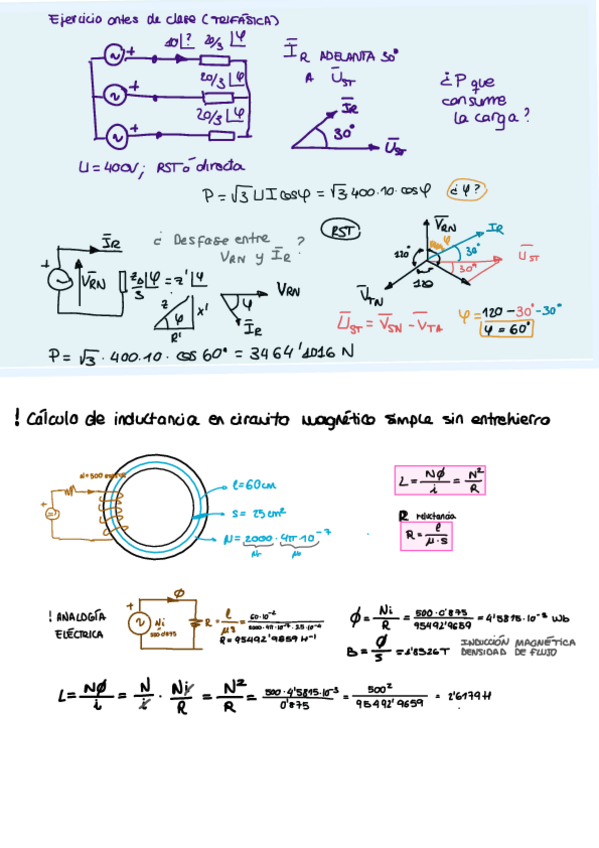 Ejercicio antes de clase (TRIFÁSICA)
10∠? 20/3∠φ
20/3∠φ
20/3∠φ
I_R ADELANTA 30°
A U_ST
I_R
30°
U_ST
¿P que
consume
la carga?
U = 400V; RSTó directa
P = √3 UI cosφ = √3·400·10·cosφ ¿φ?
I_R
V_RN
¿Desfase entre
V_RN y I_R?
= z'∠φ
z
φ
x'
R'
V_RN
φ
I_R
RST
V_RN
I_R
φ
30°
120°
30°
120
U_ST
V_TN
U_ST = V_SN - V_TN
φ = 120 - 30° - 30°
φ = 60°
P = √3 · 400 · 10 · cos 60° = 3464'1016 N
! Cálculo de inductancia en circuito magnético simple sin entrehierro
N=500
l = 60cm
s = 25cm²
μ = 2000 · 4π·10⁻⁷
μr μo
L = Nφ/i = N²/R
R reluctancia
R = l/μ·s
! ANALOGÍA
ELÉCTRICA
φ
+
Ni
R = l/μs = 60·10⁻²/2000·4π·10⁻⁷·25·10⁻⁴
R = 95492'9659 H⁻¹
φ = Ni/R = 500·0'875/95492'9659 = 4'5815·10⁻³ Wb
B = φ/s = 1'8326T INDUCCIÓN MAGNÉTICA
DENSIDAD DE FLUJO
L = Nφ/i = N/i · Ni/R = N²/R = 500·4'5815·10⁻³/0'875 = 500²/95492'9659 = 2'6179 H